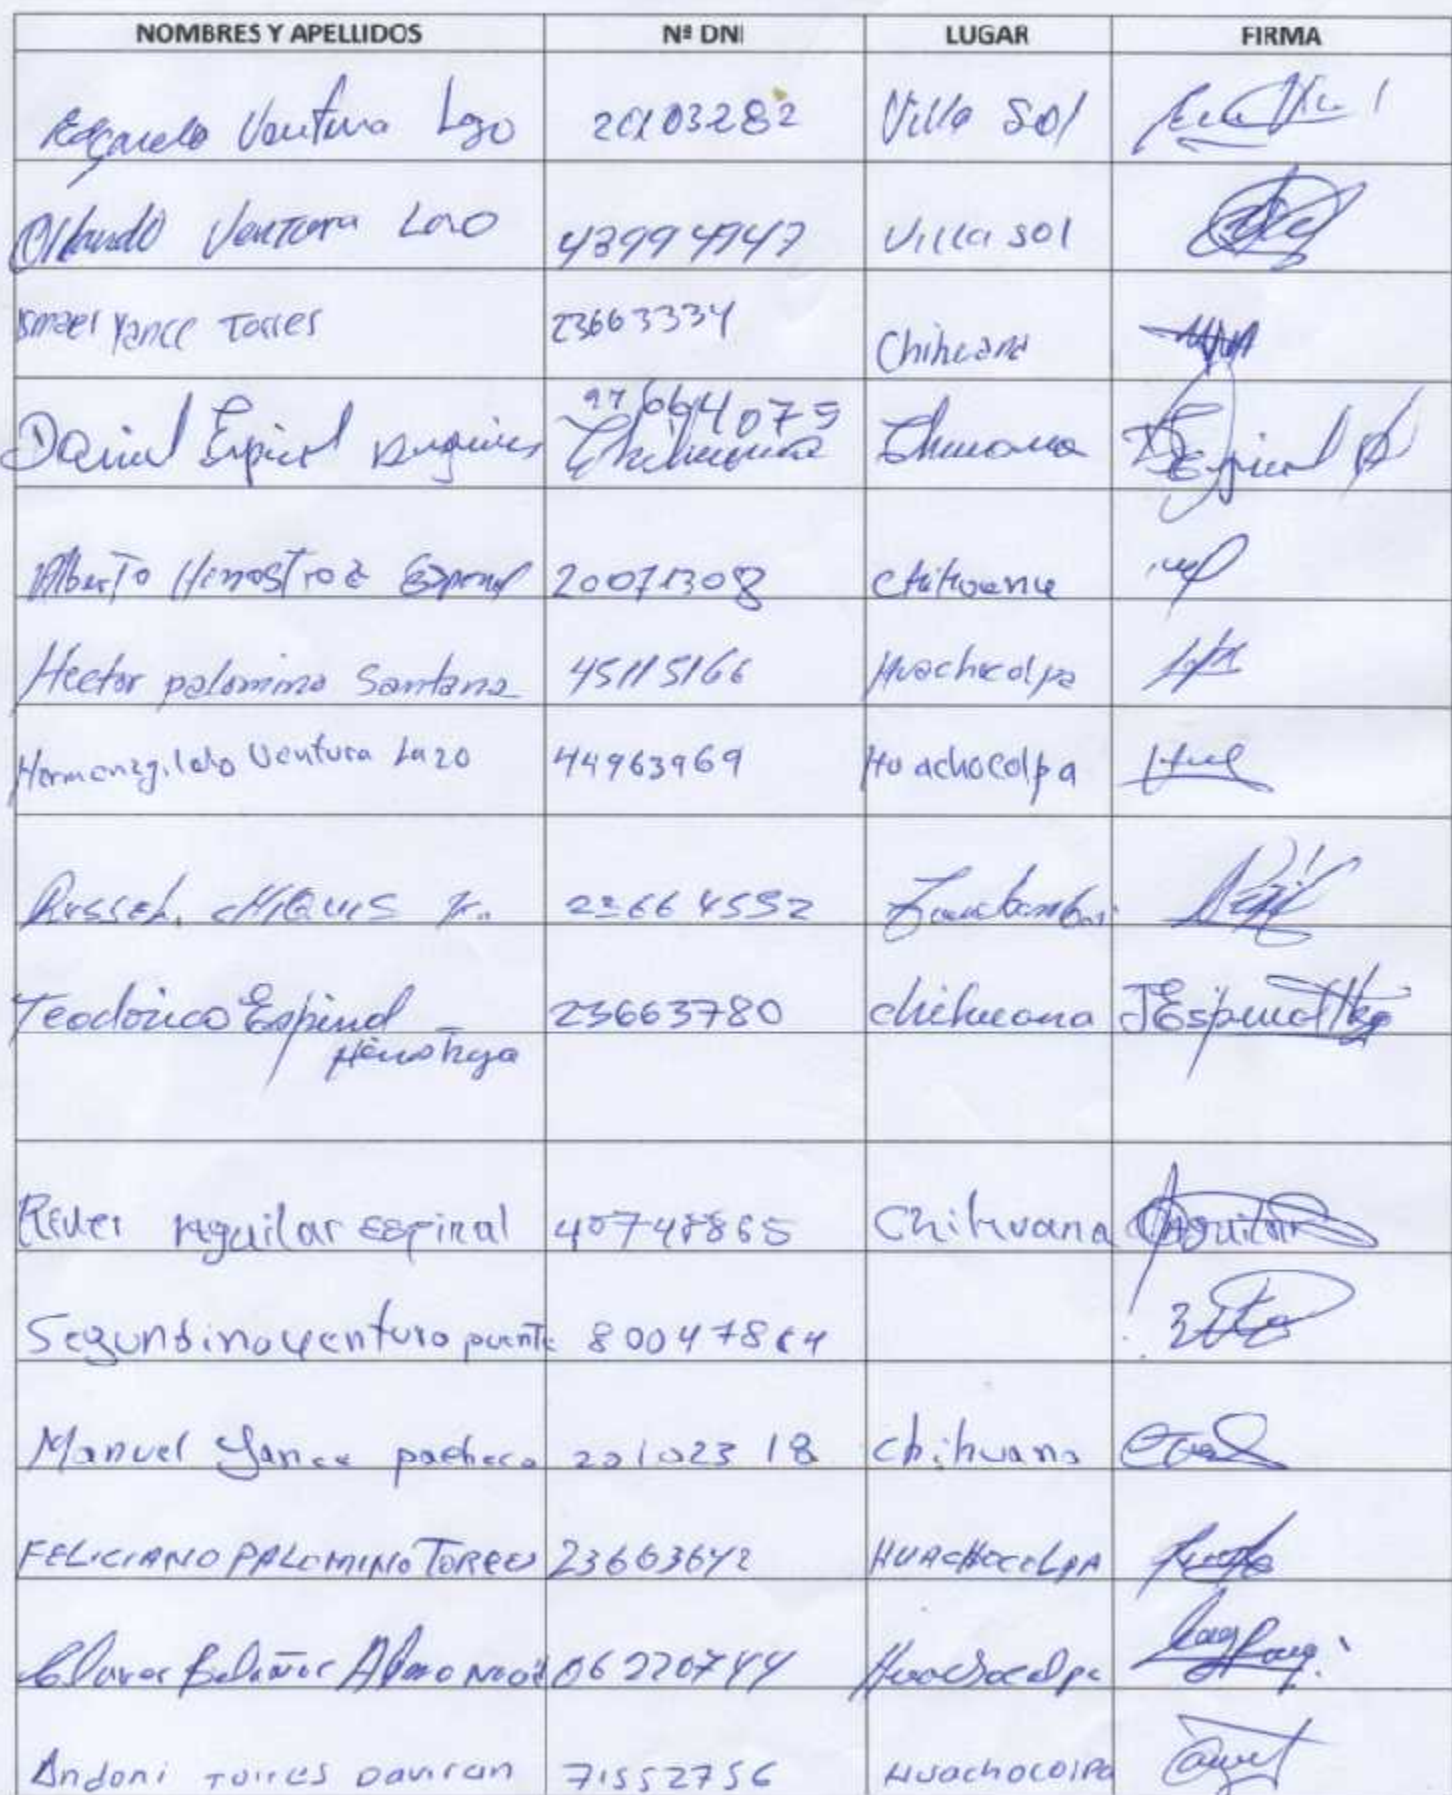 NOMBRES Y APELLIDOS Nº DNI LUGAR FIRMA
Edgardo Ventura Lazo 20103282 Villa Sol
Orlando Ventura Lazo 43994947 Villa sol
Ismael Yance Torres 23663334 Chihuana
Daniel Espinal 97664075
Chihuana
Alberto Henostroza Espinal 20071308 Chihuana
Hector palomino Santana 45115166 Huachocolpa
Hermenegildo Ventura Lazo 44963969 Huachocolpa
23664552
Teodorico Espinal 23663780 chihuana
Henostroza
Rever Aguilar espinal 40748865 Chihuana Aguilar
Segundino ventura puente 80047864
Manuel Yance pacheco 20102318 chihuana
FELICIANO PALOMINO TORRES 23663642 HUACHOCOLPA
06220744 Huachocolpa
Andoni Torres Daviran 71552756 Huachocolpa